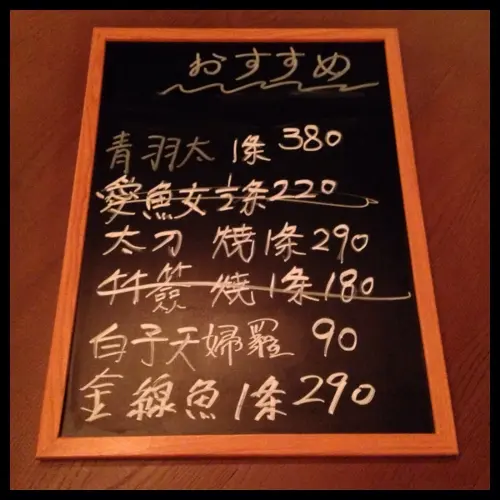 おすすめ
青羽太 1条 380
愛魚女 1/2条 220
太刀 燒 1条 290
竹簽 燒 1条 180
白子天婦羅 90
金線魚 1条 290